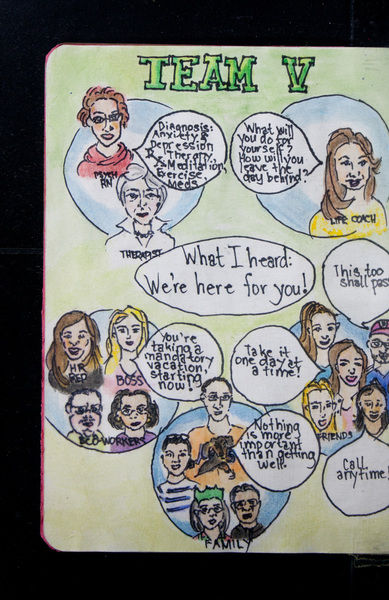 TEAM V
Diagnosis:
Anxiety &
Depression
Rx Therapy,
Meditation,
Exercise,
Meds.
RN
THERAPIST
What will
you do for
yourself?
How will you
leave the
day behind?
LIFE COACH
What I heard:
We're here for you!
This, too
shall pass
You're
taking a
mandatory
vacation,
starting
now!
HR
REP
BOSS
CO-WORKERS
Take it
one day at
a time!
FRIENDS
Nothing
is more
important
than getting
well.
FAMILY
Call
anytime!